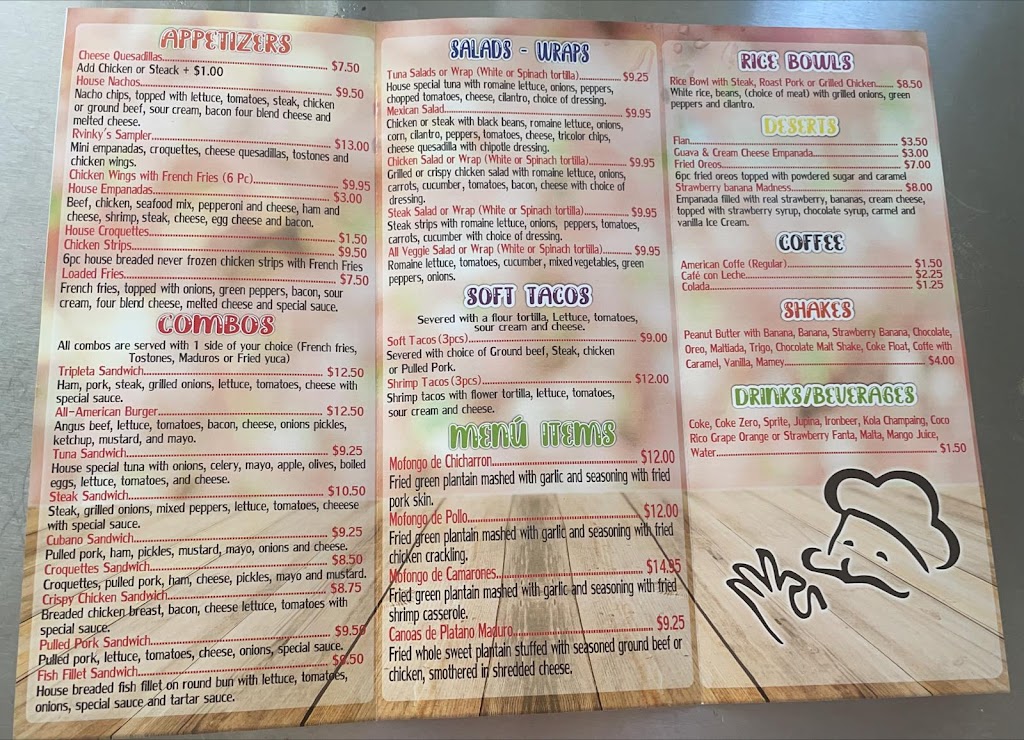 APPETIZERS
Cheese Quesadillas $7.50
Add Chicken or Steack + $1.00
House Nachos $9.50
Nacho chips, topped with lettuce, tomatoes, steak, chicken
or ground beef, sour cream, bacon four blend cheese and
melted cheese.
Rvinky's Sampler $13.00
Mini empanadas, croquettes, cheese quesadillas, tostones and
chicken wings.
Chicken Wings with French Fries (6 Pc) $9.95
House Empanadas $3.00
Beef, chicken, seafood mix, pepperoni and cheese, ham and
cheese, shrimp, steak, cheese, egg cheese and bacon.
House Croquettes $1.50
Chicken Strips $9.50
6pc house breaded never frozen chicken strips with French Fries
Loaded Fries $7.50
French fries, topped with onions, green peppers, bacon, sour
cream, four blend cheese, melted cheese and special sauce.
COMBOS
All combos are served with 1 side of your choice (French fries,
Tostones, Maduros or Fried yuca)
Tripleta Sandwich $12.50
Ham, pork, steak, grilled onions, lettuce, tomatoes, cheese with
special sauce.
All-American Burger $12.50
Angus beef, lettuce, tomatoes, bacon, cheese, onions pickles,
ketchup, mustard, and mayo.
Tuna Sandwich $9.25
House special tuna with onions, celery, mayo, apple, olives, boiled
eggs, lettuce, tomatoes, and cheese.
Steak Sandwich $10.50
Steak, grilled onions, mixed peppers, lettuce, tomatoes, cheeese
with special sauce.
Cubano Sandwich $9.25
Pulled pork, ham, pickles, mustard, mayo, onions and cheese.
Croquettes Sandwich $8.50
Croquettes, pulled pork, ham, cheese, pickles, mayo and mustard.
Crispy Chicken Sandwich $8.75
Breaded chicken breast, bacon, cheese lettuce, tomatoes with
special sauce.
Pulled Pork Sandwich $9.50
Pulled pork, lettuce, tomatoes, cheese, onions, special sauce.
Fish Fillet Sandwich
House breaded fish fillet on round bun with lettuce, tomatoes,
onions, special sauce and tartar sauce.
SALADS - WRAPS
Tuna Salads or Wrap (White or Spinach tortilla) $9.25
House special tuna with romaine lettuce, onions, peppers,
chopped tomatoes, cheese, cilantro, choice of dressing.
Mexican Salad $9.95
Chicken or steak with black beans, romaine lettuce, onions,
corn, cilantro, peppers, tomatoes, cheese, tricolor chips,
cheese quesadilla with chipotle dressing.
Chicken Salad or Wrap (White or Spinach tortilla) $9.95
Grilled or crispy chicken salad with romaine lettuce, onions,
carrots, cucumber, tomatoes, bacon, cheese with choice of
dressing.
Steak Salad or Wrap (White or Spinach tortilla) $9.95
Steak strips with romaine lettuce, onions, peppers, tomatoes,
carrots, cucumber with choice of dressing.
All Veggie Salad or Wrap (White or Spinach tortilla) $9.95
Romaine lettuce, tomatoes, cucumber, mixed vegetables, green
peppers, onions.
SOFT TACOS
Severed with a flour tortilla, Lettuce, tomatoes,
sour cream and cheese.
Soft Tacos (3pcs) $9.00
Severed with choice of Ground beef, Steak, chicken
or Pulled Pork.
Shrimp Tacos (3pcs) $12.00
Shrimp tacos with flower tortilla, lettuce, tomatoes,
sour cream and cheese.
MENÚ ITEMS
Mofongo de Chicharron $12.00
Fried green plantain mashed with garlic and seasoning with fried
pork skin.
Mofongo de Pollo $12.00
Fried green plantain mashed with garlic and seasoning with fried
chicken crackling.
Mofongo de Camarones $14.95
Fried green plantain mashed with garlic and seasoning with fried
shrimp casserole.
Canoas de Platano Maduro $9.25
Fried whole sweet plantain stuffed with seasoned ground beef or
chicken, smothered in shredded cheese.
RICE BOWLS
Rice Bowl with Steak, Roast Pork or Grilled Chicken $8.50
White rice, beans, (choice of meat) with grilled onions, green
peppers and cilantro.
DESERTS
Flan $3.50
Guava & Cream Cheese Empanada $3.00
Fried Oreos $7.00
6pc fried oreos topped with powdered sugar and caramel
Strawberry banana Madness $8.00
Empanada filled with real strawberry, bananas, cream cheese,
topped with strawberry syrup, chocolate syrup, carmel and
vanilla Ice Cream.
COFFEE
American Coffe (Regular) $1.50
Café con Leche $2.25
Colada $1.25
SHAKES
Peanut Butter with Banana, Banana, Strawberry Banana, Chocolate,
Oreo, Maltiada, Trigo, Chocolate Malt Shake, Coke Float, Coffe with
Caramel, Vanilla, Mamey $4.00
DRINKS/BEVERAGES
Coke, Coke Zero, Sprite, Jupina, Ironbeer, Kola Champaing, Coco
Rico Grape Orange or Strawberry Fanta, Malta, Mango Juice,
Water $1.50